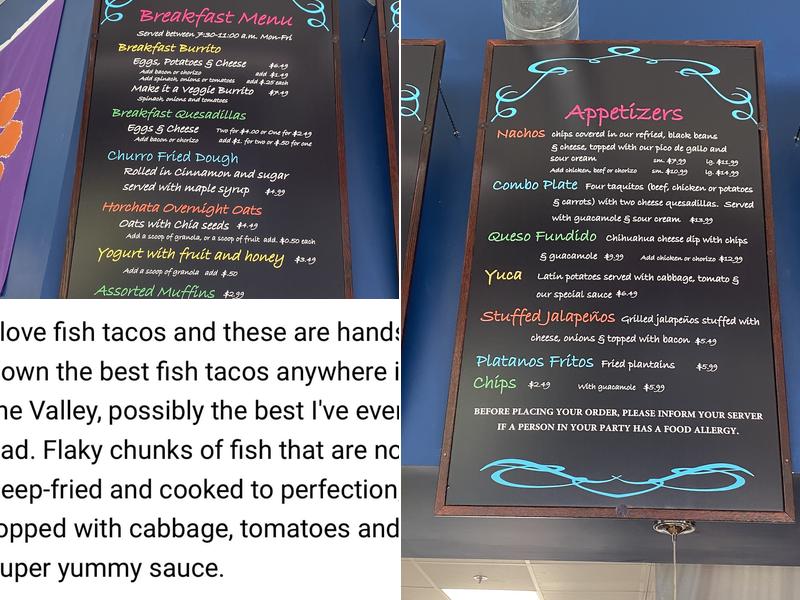 Breakfast Menu
Served between 7:30-11:00 a.m. Mon-Fri
Breakfast Burrito
Eggs, Potatoes & Cheese $6.49
Add bacon or chorizo add $1.49
Add spinach, onions or tomatoes add $.25 each
Make it a Veggie Burrito $7.49
Spinach, onions and tomatoes
Breakfast Quesadillas
Eggs & Cheese Two for $4.00 or One for $2.49
Add bacon or chorizo add $1. for two or $.50 for one
Churro Fried Dough
Rolled in Cinnamon and sugar
served with maple syrup $4.99
Horchata Overnight Oats
Oats with Chia seeds $4.49
Add a scoop of granola, or a scoop of fruit add. $0.50 each
Yogurt with fruit and honey $3.49
Add a scoop of granola add $.50
Assorted Muffins $2.99
love fish tacos and these are hands
own the best fish tacos anywhere i
he Valley, possibly the best I've ever
ad. Flaky chunks of fish that are no
eep-fried and cooked to perfection
opped with cabbage, tomatoes and
uper yummy sauce.
Appetizers
Nachos chips covered in our refried, black beans
& cheese, topped with our pico de gallo and
sour cream sm. $7.99 lg. $11.99
Add chicken, beef or chorizo sm. $10.99 lg. $14.99
Combo Plate Four taquitos (beef, chicken or potatoes
& carrots) with two cheese quesadillas. Served
with guacamole & sour cream $13.99
Queso Fundido Chihuahua cheese dip with chips
& guacamole $9.99 Add chicken or chorizo $12.99
Yuca Latin potatoes served with cabbage, tomato &
our special sauce $6.49
Stuffed Jalapeños Grilled jalapeños stuffed with
cheese, onions & topped with bacon $5.49
Platanos Fritos Fried plantains $5.99
Chips $2.49 With guacamole $5.99
BEFORE PLACING YOUR ORDER, PLEASE INFORM YOUR SERVER
IF A PERSON IN YOUR PARTY HAS A FOOD ALLERGY.